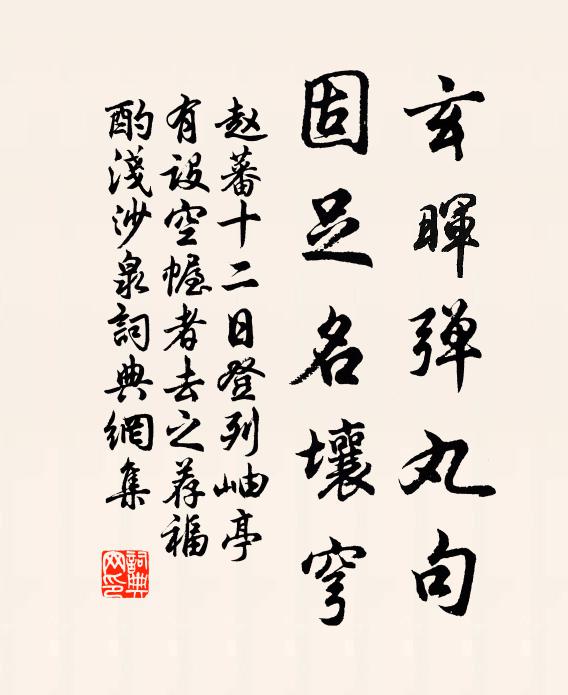 玄暉弹丸句
固足名壤穹
赵蕃十二日登列岫亭
有设空幄者去之荐福
酌淺沙泉詞典網集
詞典网印